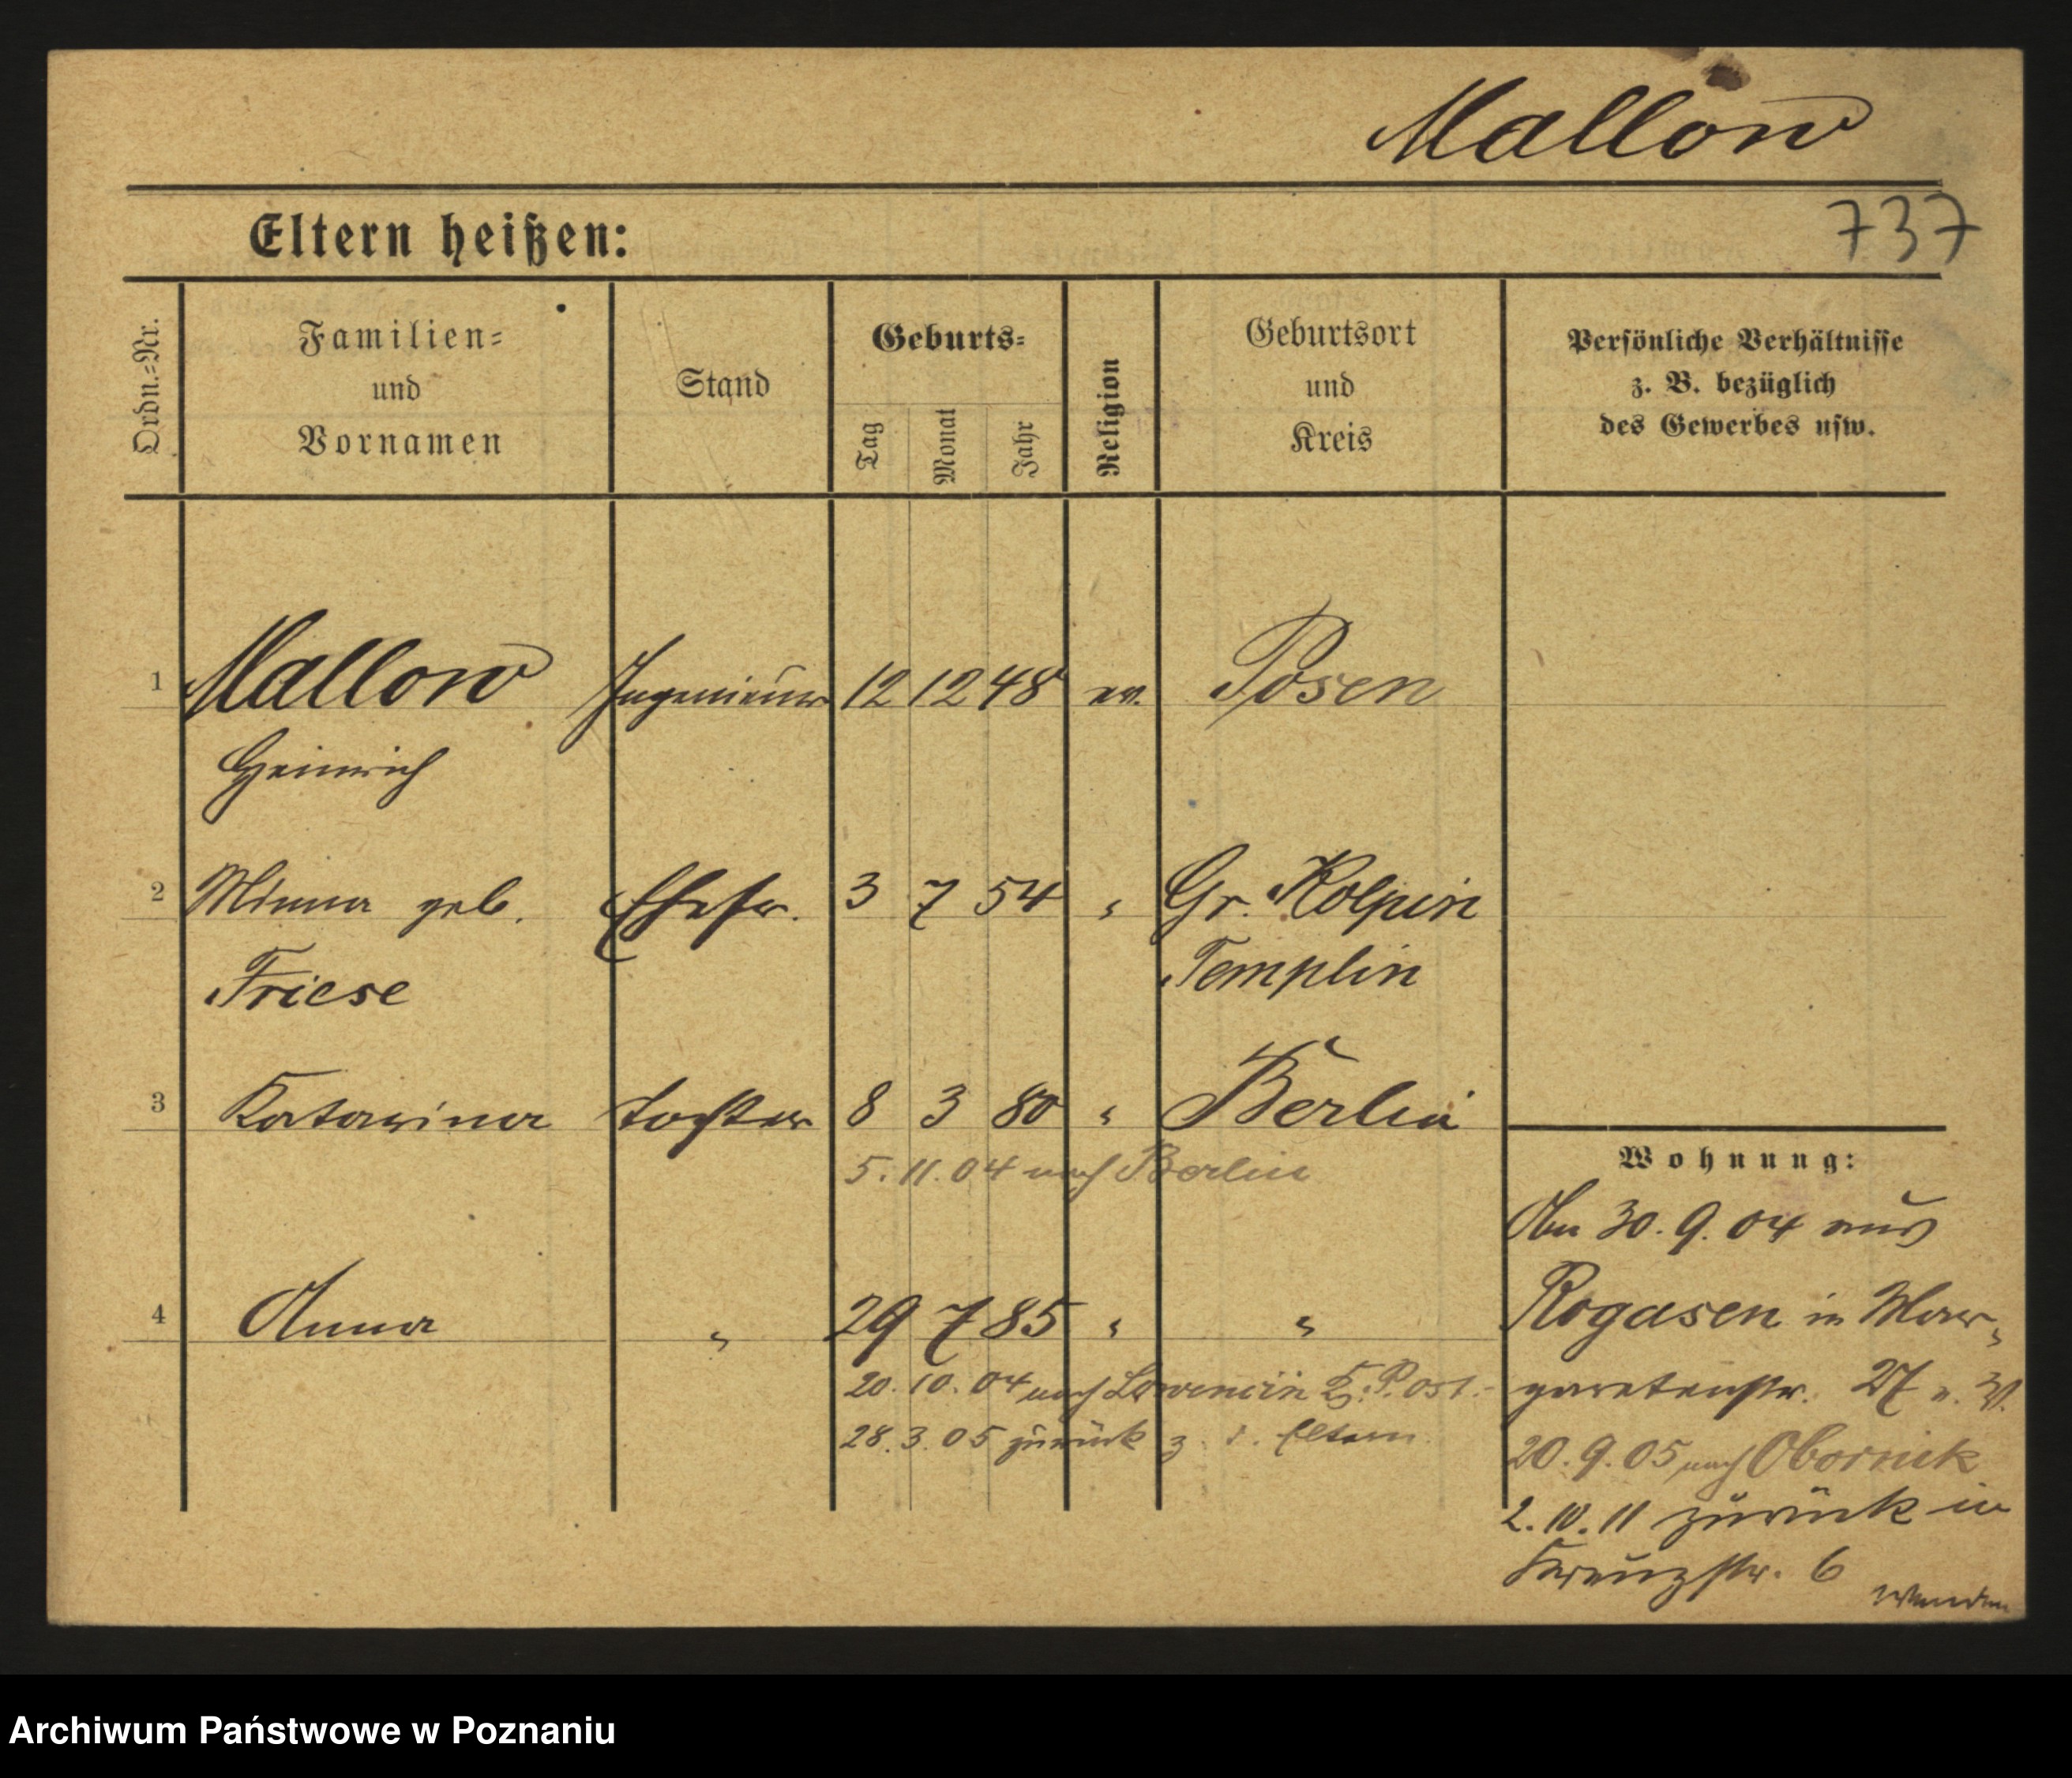 Mallow
737
Eltern heißen:
Ordn.-Nr.
Familien-
und
Vornamen
Stand
Geburts-
Tag
Monat
Jahr
Religion
Geburtsort
und
Kreis
Persönliche Verhältnisse
z. B. bezüglich
des Gewerbes usw.
1 Mallow Ingenieur 12 12 48 ev. Posen
Heinrich
2 Minna geb. Ehefr. 3 7 54 " Gr. Kölpin
Friese Templin
3 Katarina Tochter 8 3 80 " Berlin
5.11.04 nach Berlin
4 Anna " 29 7 85 " "
20.10.04 nach
28.3.05 zurück z. d. Eltern
Wohnung:
Am 30.9.04 aus
Rogasen in Mar-
garetenstr. 27
20.9.05 nach Obornik
2.10.11 zurück in
Kreuzstr. 6
wenden
Archiwum Państwowe w Poznaniu